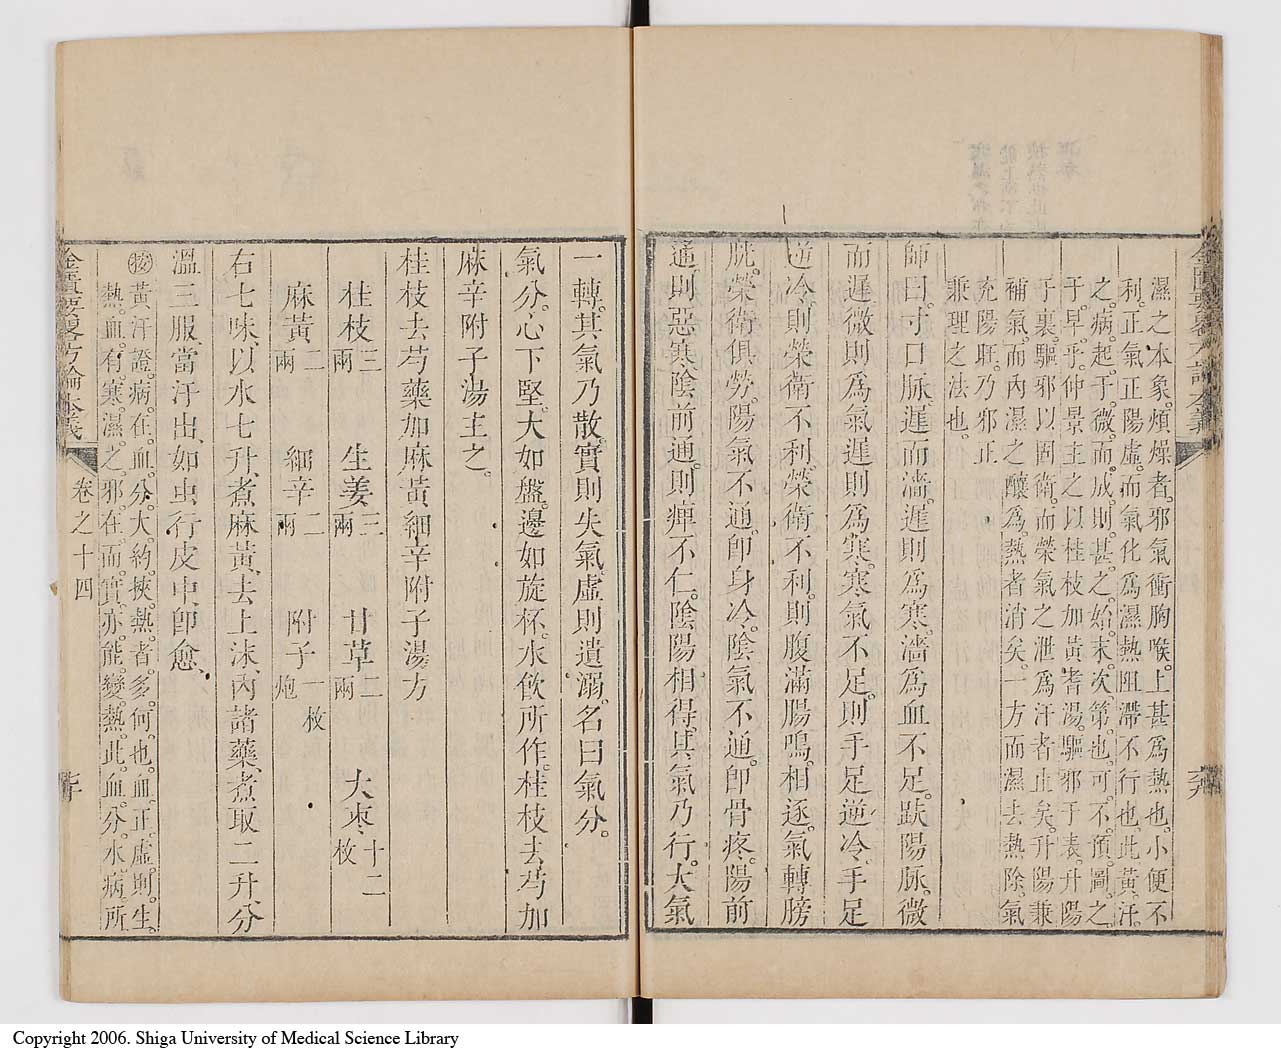 濕之本象。煩燥者。邪氣衝胸喉。上甚爲熱也。小便不
利。正氣正陽虛。而氣化爲濕熱阻滯不行也。此黃汗。
之。病。起。于。微。而。成。則。甚。之。始。末。次。第。也。可。不。預。圖。之。
于。早。乎。仲景主之以桂枝加黃耆湯。驅邪于表。升陽
于裏。驅邪以固衛。而榮氣之泄爲汗者止矣。升陽兼
補氣。而內濕之釀爲熱者消矣。一方而濕去熱除。氣
充陽旺。乃邪正
兼理之法也。
師曰。寸口脉。遲而濇。遲則爲寒。濇爲血不足。趺陽脉。微
而遲。微則爲氣。遲則爲寒。寒氣不足。則手足逆冷。手足
逆冷。則榮衛不利。榮衛不利。則腹滿腸鳴。相逐。氣轉膀
胱。榮衛俱勞。陽氣不通。卽身冷。陰氣不通。卽骨疼。陽前
通。則惡寒。陰前通。則痺不仁。陰陽相得。其氣乃行。大氣
一轉。其氣乃散。實則失氣。虛則遺溺。名曰氣分。
氣分。心下堅。大如盤。邊如旋杯。水飲所作。桂枝去芍加
麻辛附子湯主之。
桂枝去芍藥加麻黃細辛附子湯方
桂枝三兩 生姜三兩 甘草二兩 大棗十二枚
麻黃二兩 細辛二兩 附子一枚炮
右七味、以水七升、煮麻黃、去上沫、內諸藥、煮取二升、分
溫三服、當汗出、如虫行皮中、卽愈、
按黃。汗。證。病。在。血。分。大。約。挾。熱。者。多。何。也。血。正。虛。則。生。
熱。血。有。寒。濕。之。邪。在。而。實。亦。能。變。熱。此。血。分。水。病。所
金匱要略方論本義
卷之十四
七十
金匱要略方論本義
六九
Copyright 2006. Shiga University of Medical Science Library